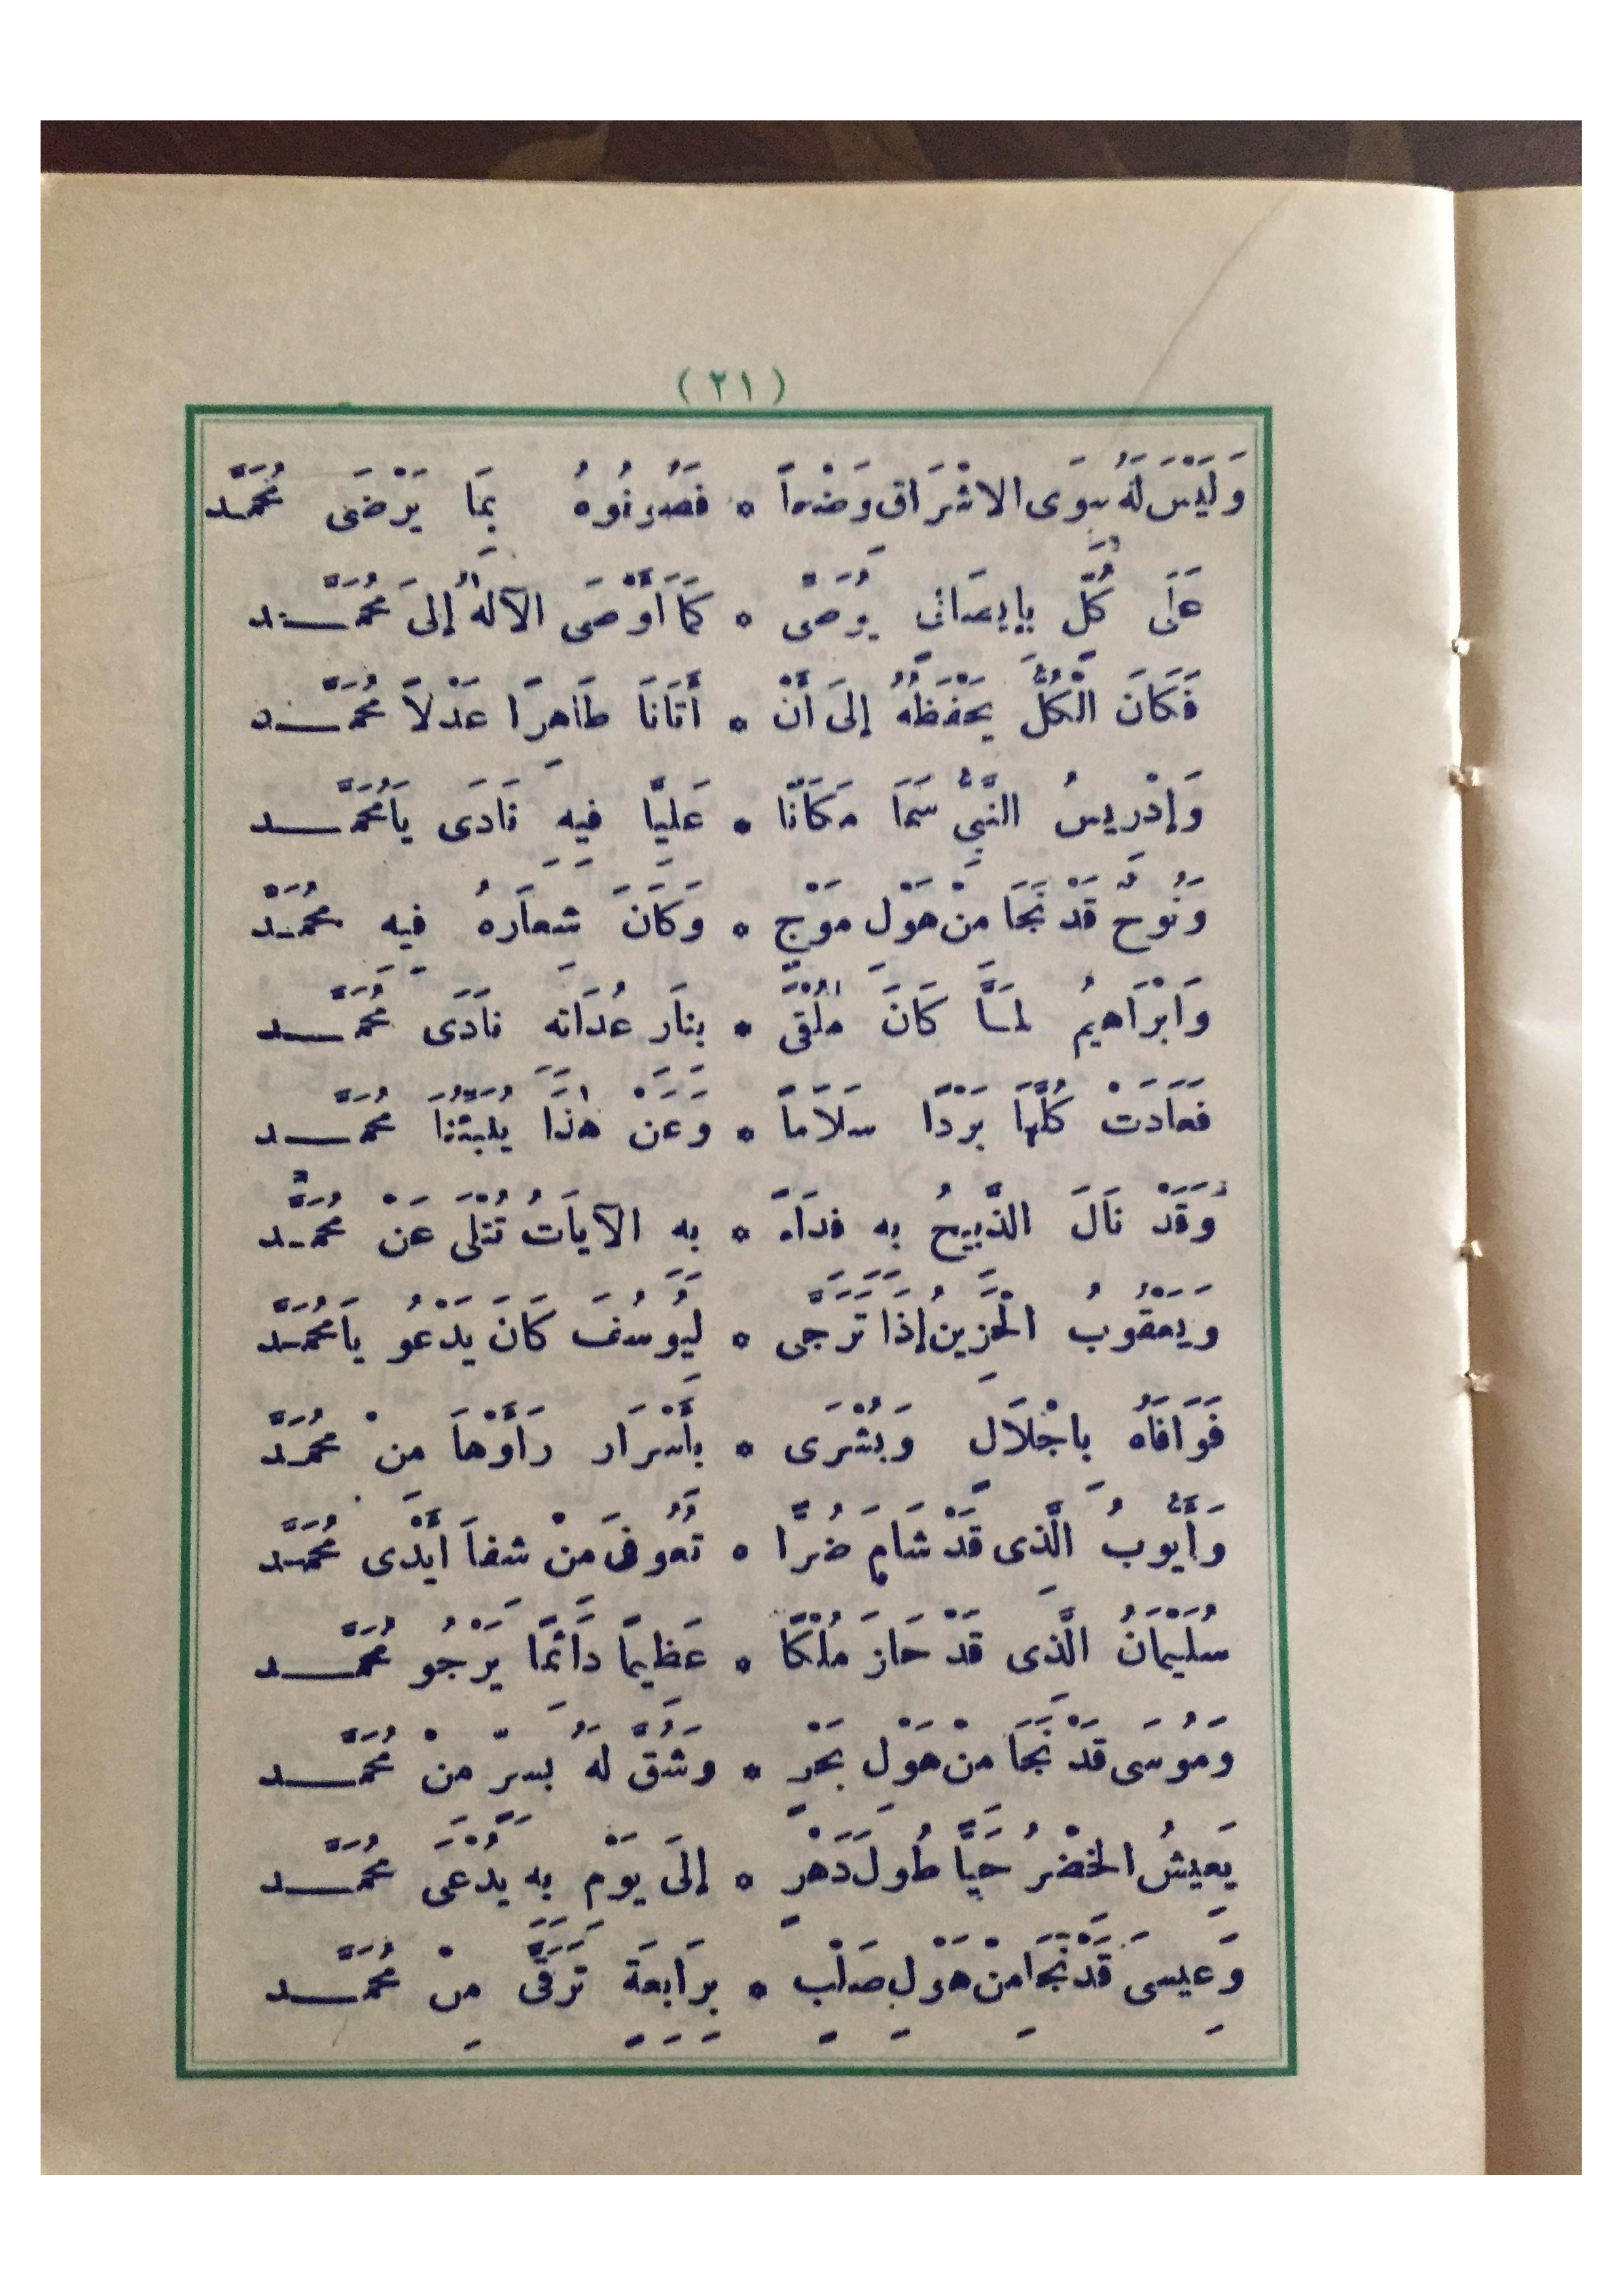 ( ٢١ )
وَلَيْسَ لَهُ سِوَى الاشْرَاقِ وَضْعاً * فَصُونُوهُ بِمَا يَرْضَى مُحَمَّد
عَلَى كُلٍّ بِإِيمَانٍ يُوَصَّى * كَمَا أَوْصَى الآلهُ إِلىَ مُحَمَّد
فَكَانَ الْكُلُّ يَحْفَظُهُ إِلىَ أَنْ * أَتَانَا طَاهِرًا عَدْلاً مُحَمَّد
وَإِدْرِيسُ النَّبِيُّ سَمَا مَكَانًا * عَلِيًّا فِيهِ نَادَى يَامُحَمَّد
وَنُوحٌ قَدْ نَجَا مِنْ هَوْلِ مَوْجٍ * وَكَانَ شِعَارَهُ فِيهِ مُحَمَّدْ
وَابْرَاهِيمُ لَمَّا كَانَ مُلْقَى * بِنَارِ عُدَاتِهِ نَادَى مُحَمَّد
فَعَادَتْ كُلُّهَا بَرْدًا سَلاَماً * وَعَنْ هٰذَا يُنَبِّئُنَا مُحَمَّد
وَقَدْ نَالَ الذَّبِيحُ بِهِ فِدَاءً * بِهِ الآيَاتُ تُتْلَى عَنْ مُحَمَّد
وَيَعْقُوبُ الْحَزِينُ إِذَا تَرَجَّى * لِيُوسُفَ كَانَ يَدْعُو يَامُحَمَّد
فَوَافَاهُ بِاجْلَالٍ وَبُشْرَى * بِأَسْرَارٍ رَأَوْهَا مِنْ مُحَمَّد
وَأَيُّوبُ الَّذِى قَدْ شَامَ ضُرًّا * تَعُوفِىَ مِنْ شِفَا أَيْدَى مُحَمَّد
سُلَيْمَانُ الَّذِى قَدْ حَازَ مُلْكًا * عَظِيماً دَائِمًا يَرْجُو مُحَمَّد
وَمُوسَى قَدْ نَجَا مِنْ هَوْلِ بَحْرٍ * وَشُقَّ لَهُ بِسِرٍّ مِنْ مُحَمَّد
يَعِيشُ الخِضْرُ حَيًّا طُولَ دَهْرٍ * إِلَى يَوْمٍ بِهِ يُدْعَى مُحَمَّد
وَعِيسَى قَدْ نَجَا مِنْ هَوْلِ صَلْبٍ * بِرَابِعَةٍ تَرَقَّى مِنْ مُحَمَّد